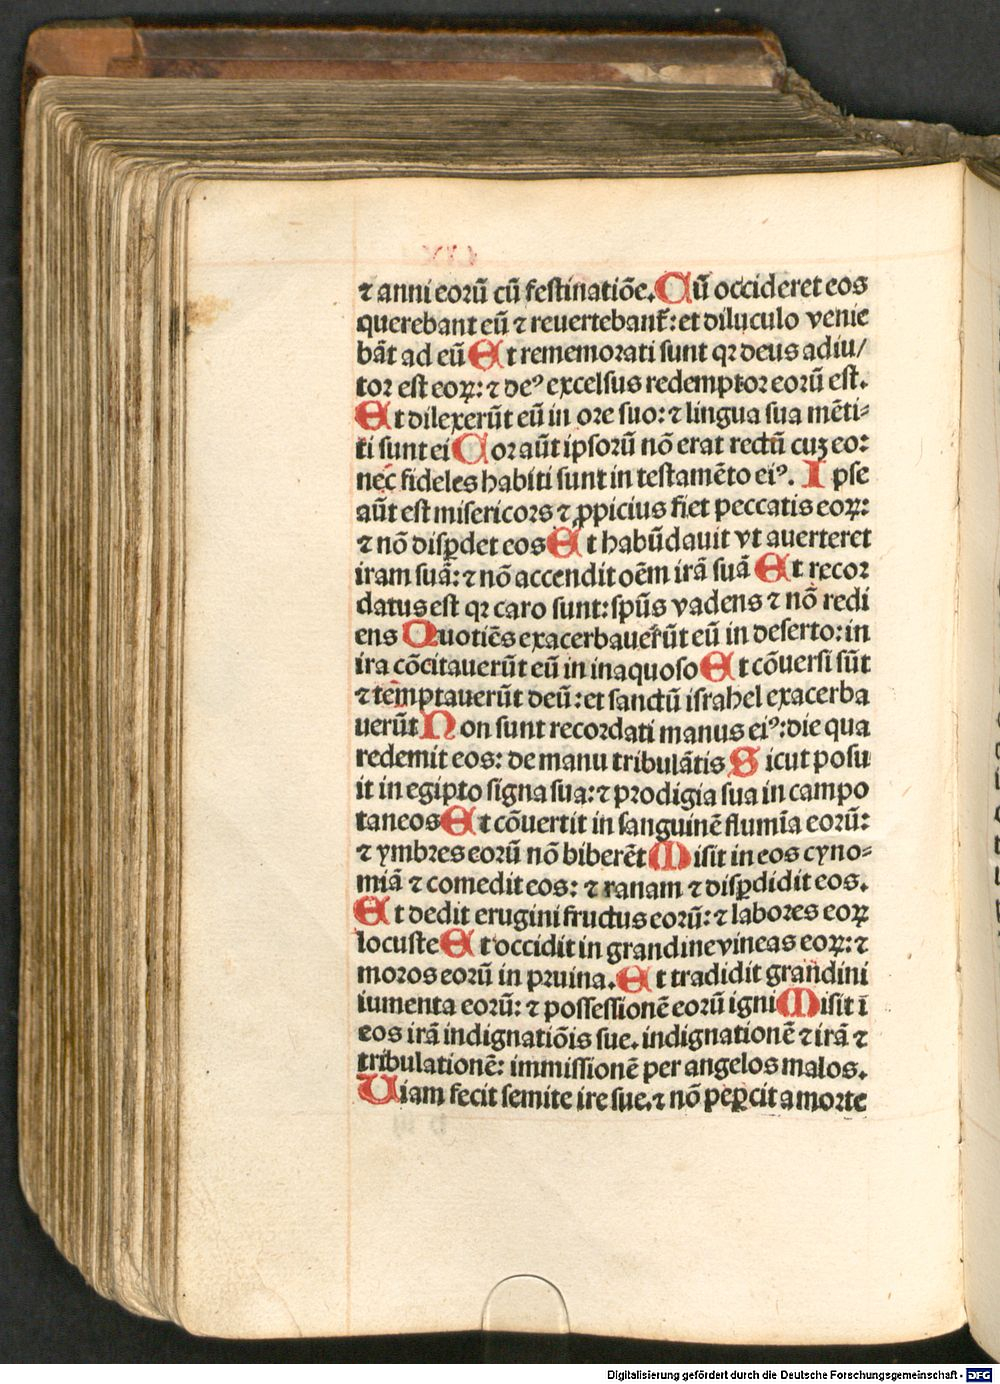 ⁊ anni eorū cū festinatiōe. Cū occideret eos
querebant eū ⁊ reuertebanť: et diluculo venie
bāt ad eū Et rememorati sunt qꝛ deus adiu/
tor est eoꝝ: ⁊ deꝰ excelsus redemptor eorū est.
Et dilexerūt eū in ore suo: ⁊ lingua sua mēti⸗
ti sunt ei Cor aūt ipsorū nō erat rectū cuꝫ eo:
nec fideles habiti sunt in testamēto eiꝰ. Ipse
aūt est misericors ⁊ ꝓpicius fiet peccatis eoꝝ:
⁊ nō disꝑdet eos Et habūdauit vt auerteret
iram suā: ⁊ nō accendit oēm irā suā Et recor
datus est qꝛ caro sunt: spūs vadens ⁊ nō redi
ens Quotiēs exacerbauerūt eū in deserto: in
ira cōcitauerūt eū in inaquoso Et cōuersi sūt
⁊ tēmptauerūt deū: et sanctū israhel exacerba
uerūt Non sunt recordati manus eiꝰ: die qua
redemit eos: de manu tribulātis Sicut posu
it in egipto signa sua: ⁊ prodigia sua in campo
taneos Et cōuertit in sanguinē flumīa eorū:
⁊ ymbres eorū nō biberēt Misit in eos cyno⸗
miā ⁊ comedit eos: ⁊ ranam ⁊ disꝑdidit eos.
Et dedit erugini fructus eorū: ⁊ labores eoꝝ
locuste Et occidit in grandine vineas eoꝝ: ⁊
moros eorū in pruina. Et tradidit grandini
iumenta eorū: ⁊ possessionē eorū igni Misit ī
eos irā indignatiōis sue. indignationē ⁊ irā ⁊
tribulationē: immissionē per angelos malos.
Uiam fecit semite ire sue. ⁊ nō peꝑcit a morte
Digitalisierung gefördert durch die Deutsche Forschungsgemeinschaft - DFG